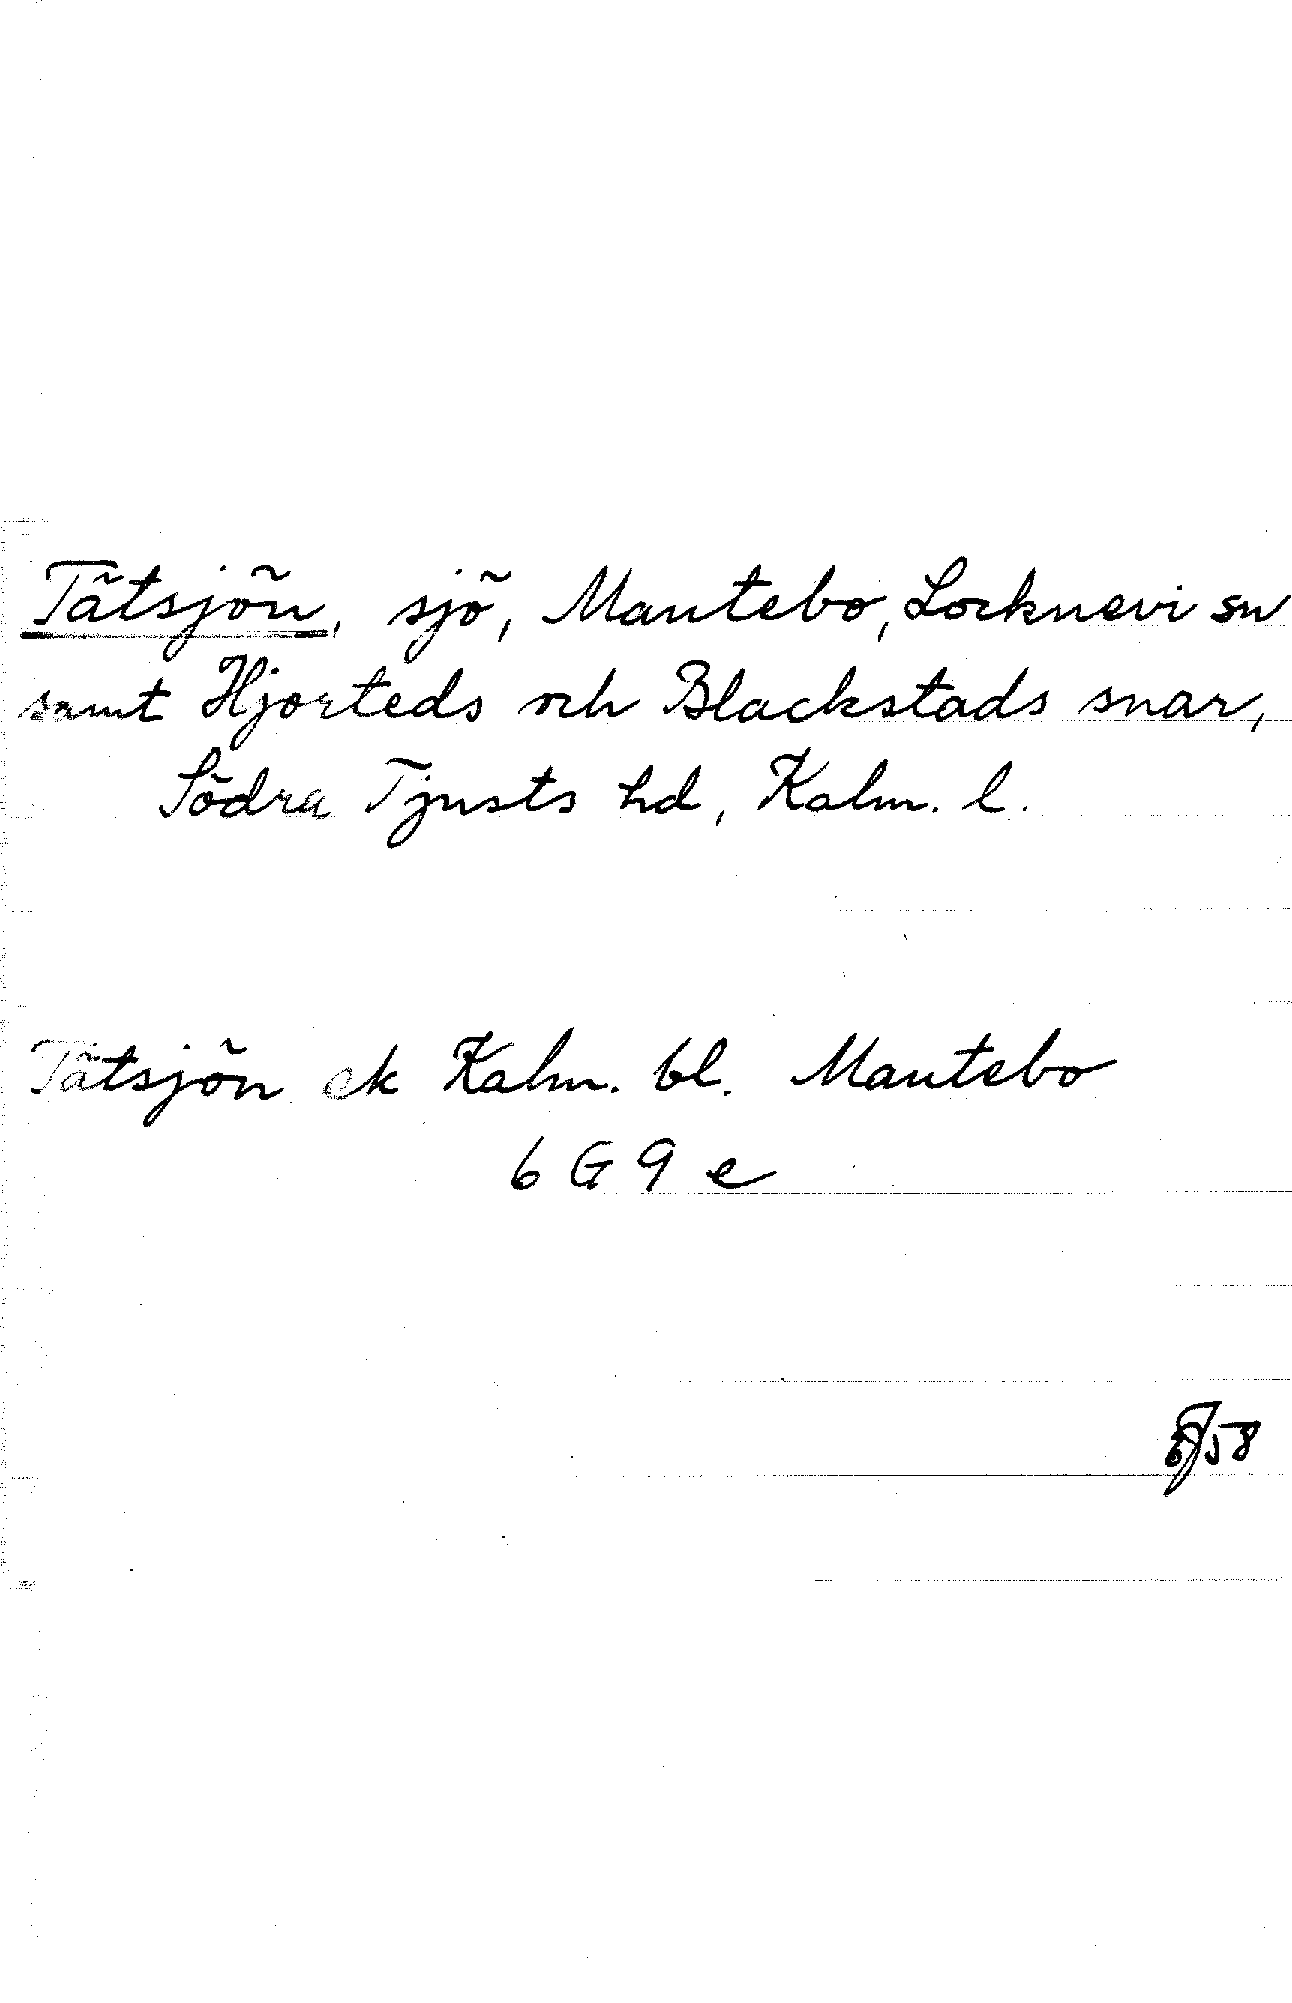 Tätsjön, sjö, Mantebo, Locknevi sn
samt Hjorteds och Blackstads snar,
Södra Tjusts hd, Kalm. l.
Tätsjön ek Kalm. bl. Mantebo
6 G 9 e
58